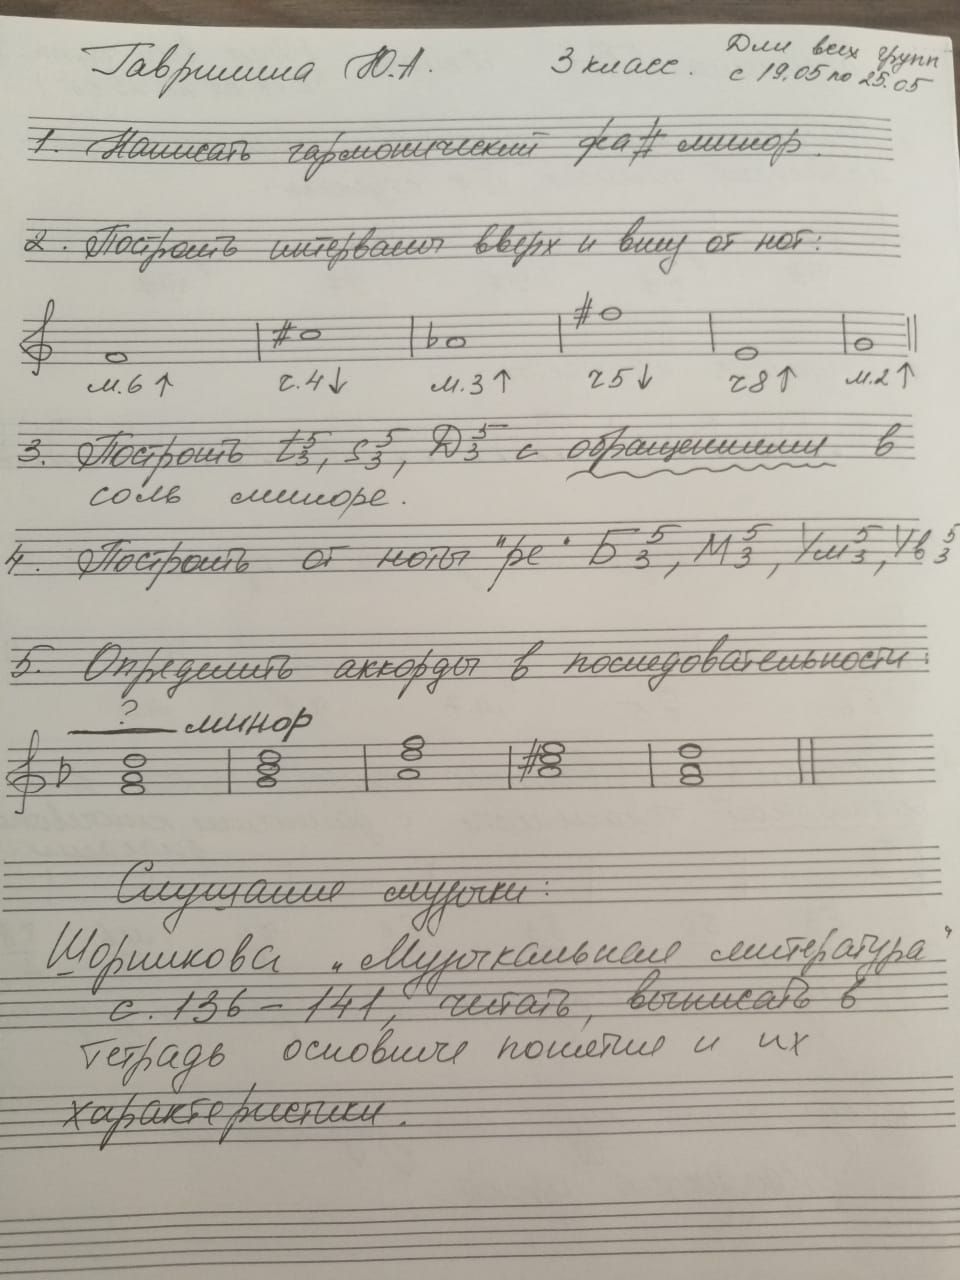 Гаврилина Ю.А. 3 класс. Для всех групп
с 19.05 по 25.05
1. Написать гармонический фа# минор.
2. Построить интервалы вверх и вниз от нот:
м.6↑ ч.4↓ м.3↑ ч5↓ ч8↑ м.2↑
3. Построить t5/3, s5/3, D5/3 с обращениями в
соль миноре.
4. Построить от ноты "ре" Б5/3, М5/3, Ум5/3, Ув5/3
5. Определить аккорды в последовательности:
? минор
Слушание музыки:
Шорникова "Музыкальная литература"
с. 136 – 141, читать, выписать в
тетрадь основные понятия и их
характеристики.